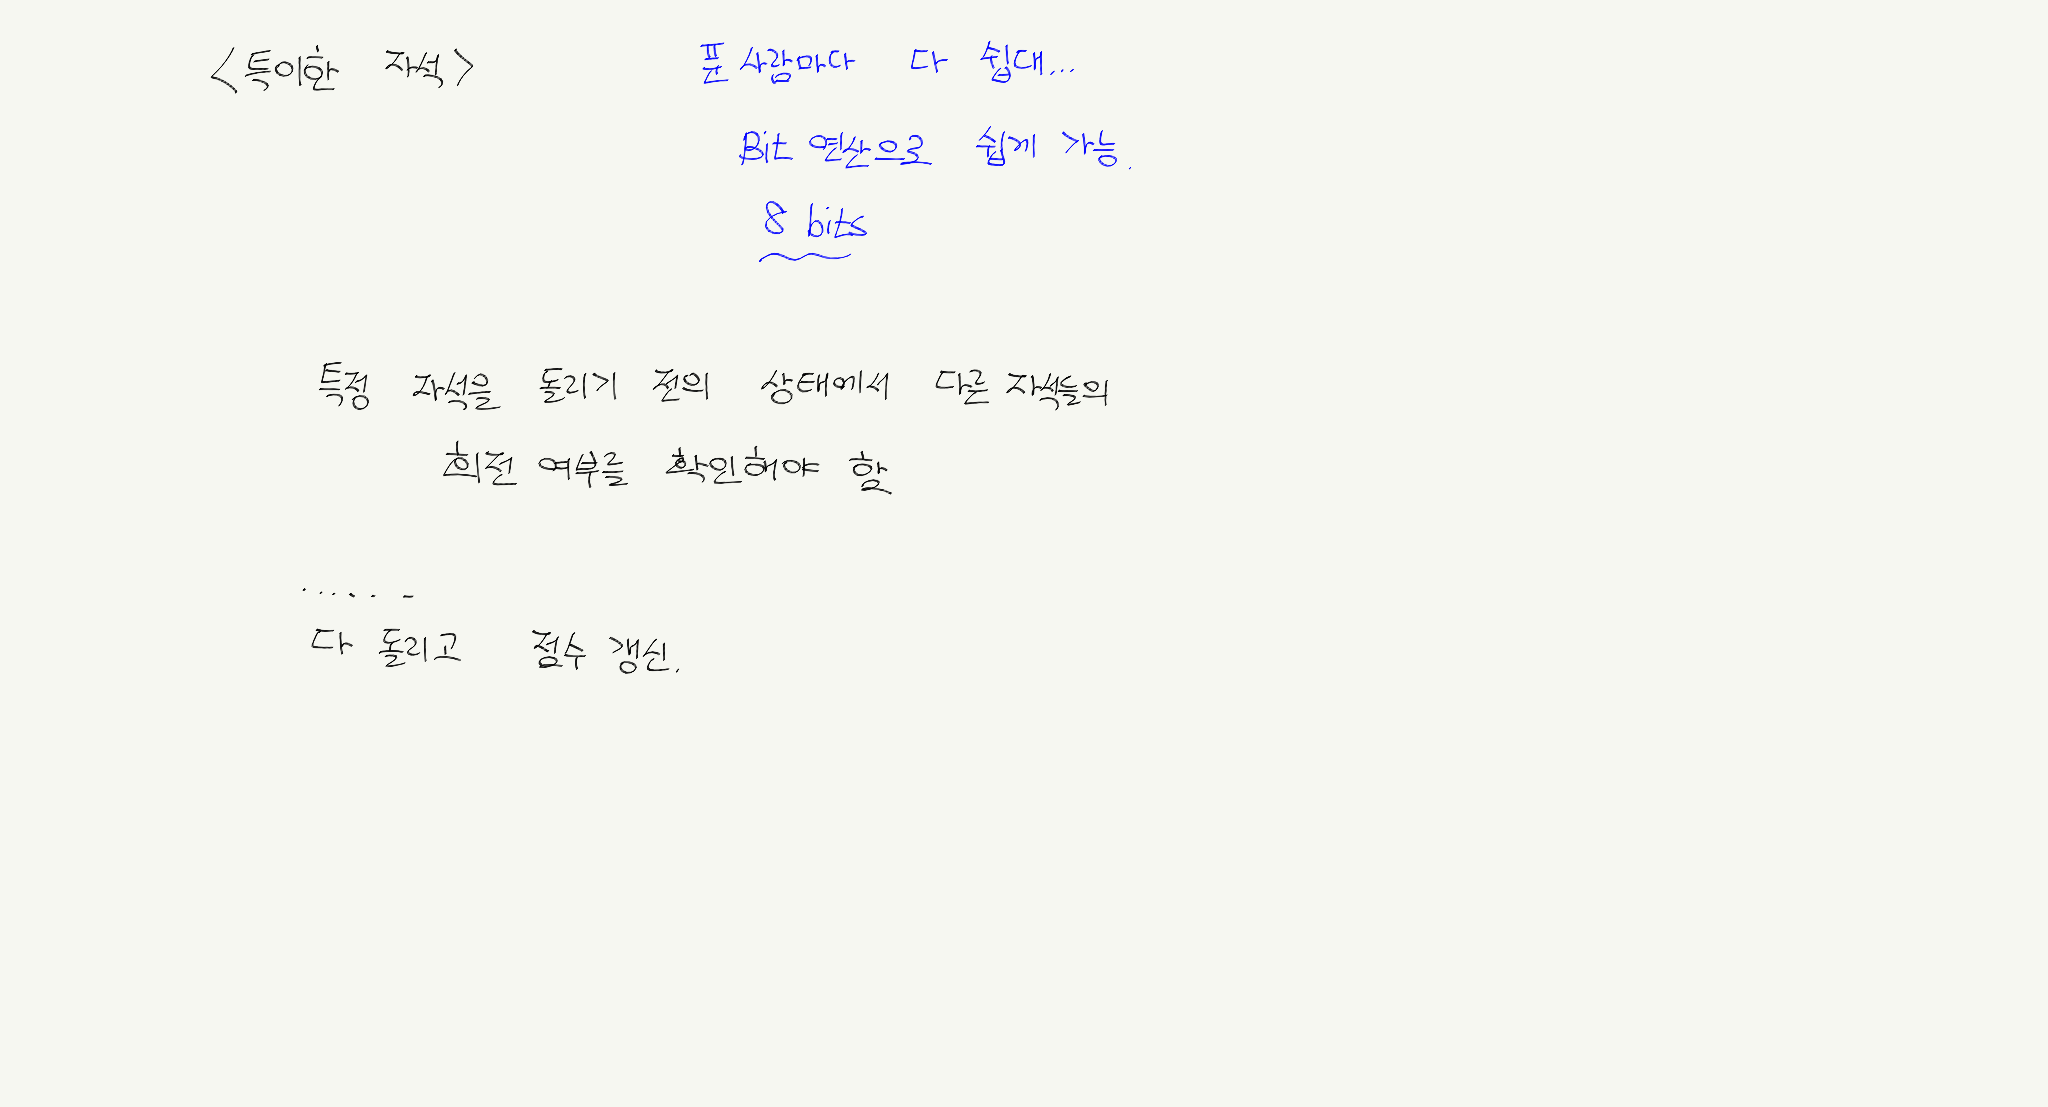 <특이한 자석>
푼 사람마다 다 쉽대...
Bit 연산으로 쉽게 가능.
8 bits
특정 자석을 돌리기 전의 상태에서 다른 자석들의
회전 여부를 확인해야 함
......
다 돌리고 점수 갱신.